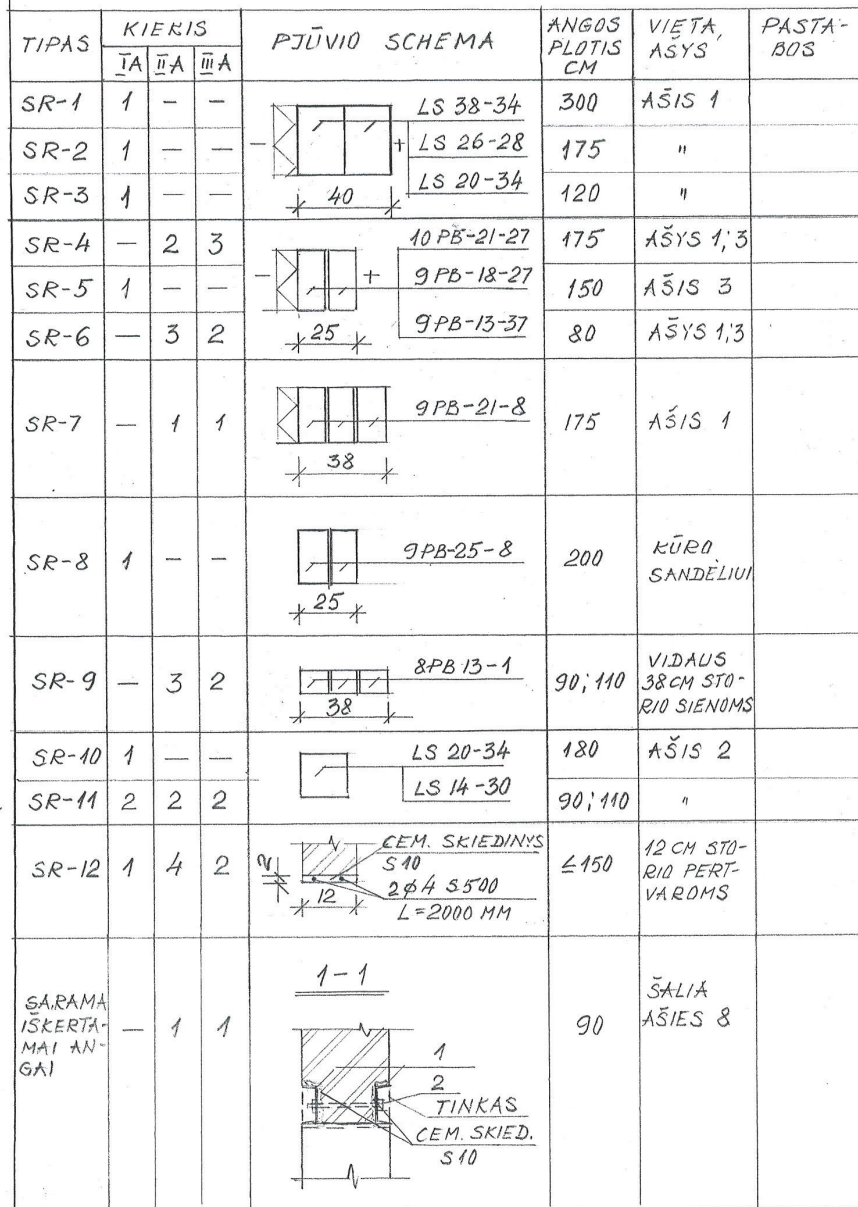 TIPAS KIEKIS PJŪVIO SCHEMA ANGOS PLOTIS CM VIETA, AŠYS PASTA-BOS
IA IIA IIIA
SR-1 1 — — LS 38-34 300 AŠIS 1
SR-2 1 — — - + LS 26-28 175 "
SR-3 1 — — 40 LS 20-34 120 "
SR-4 — 2 3 10 PB-21-27 175 AŠYS 1; 3
SR-5 1 — — - + 9 PB-18-27 150 AŠIS 3
SR-6 — 3 2 25 9PB-13-37 80 AŠYS 1,3
SR-7 — 1 1 9PB-21-8 175 AŠIS 1
38
SR-8 1 — — 9PB-25-8 200 KŪRO
SANDĖLIUI
25
SR-9 — 3 2 8PB 13-1 90; 110 VIDAUS
38 CM STO-
RIO SIENOMS
38
SR-10 1 — — LS 20-34 180 AŠIS 2
SR-11 2 2 2 LS 14-30 90; 110 "
SR-12 1 4 2 2 12 CEM. SKIEDINYS
S10
2ø4 S500
L=2000 MM
≤150 12 CM STO-
RIO PERT-
VAROMS
SĄRAMA
IŠKERTA-
MAI AN-
GAI
— 1 1 1-1 90 ŠALIA
AŠIES 8
1
2
TINKAS
CEM. SKIED.
S10